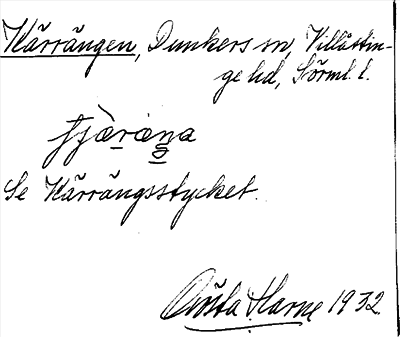 Kärrängen, Dunkers sn, Villåttin-
ge hd, Sörml. l.
Se Kärrängsstycket.
Gösta Harne 1932